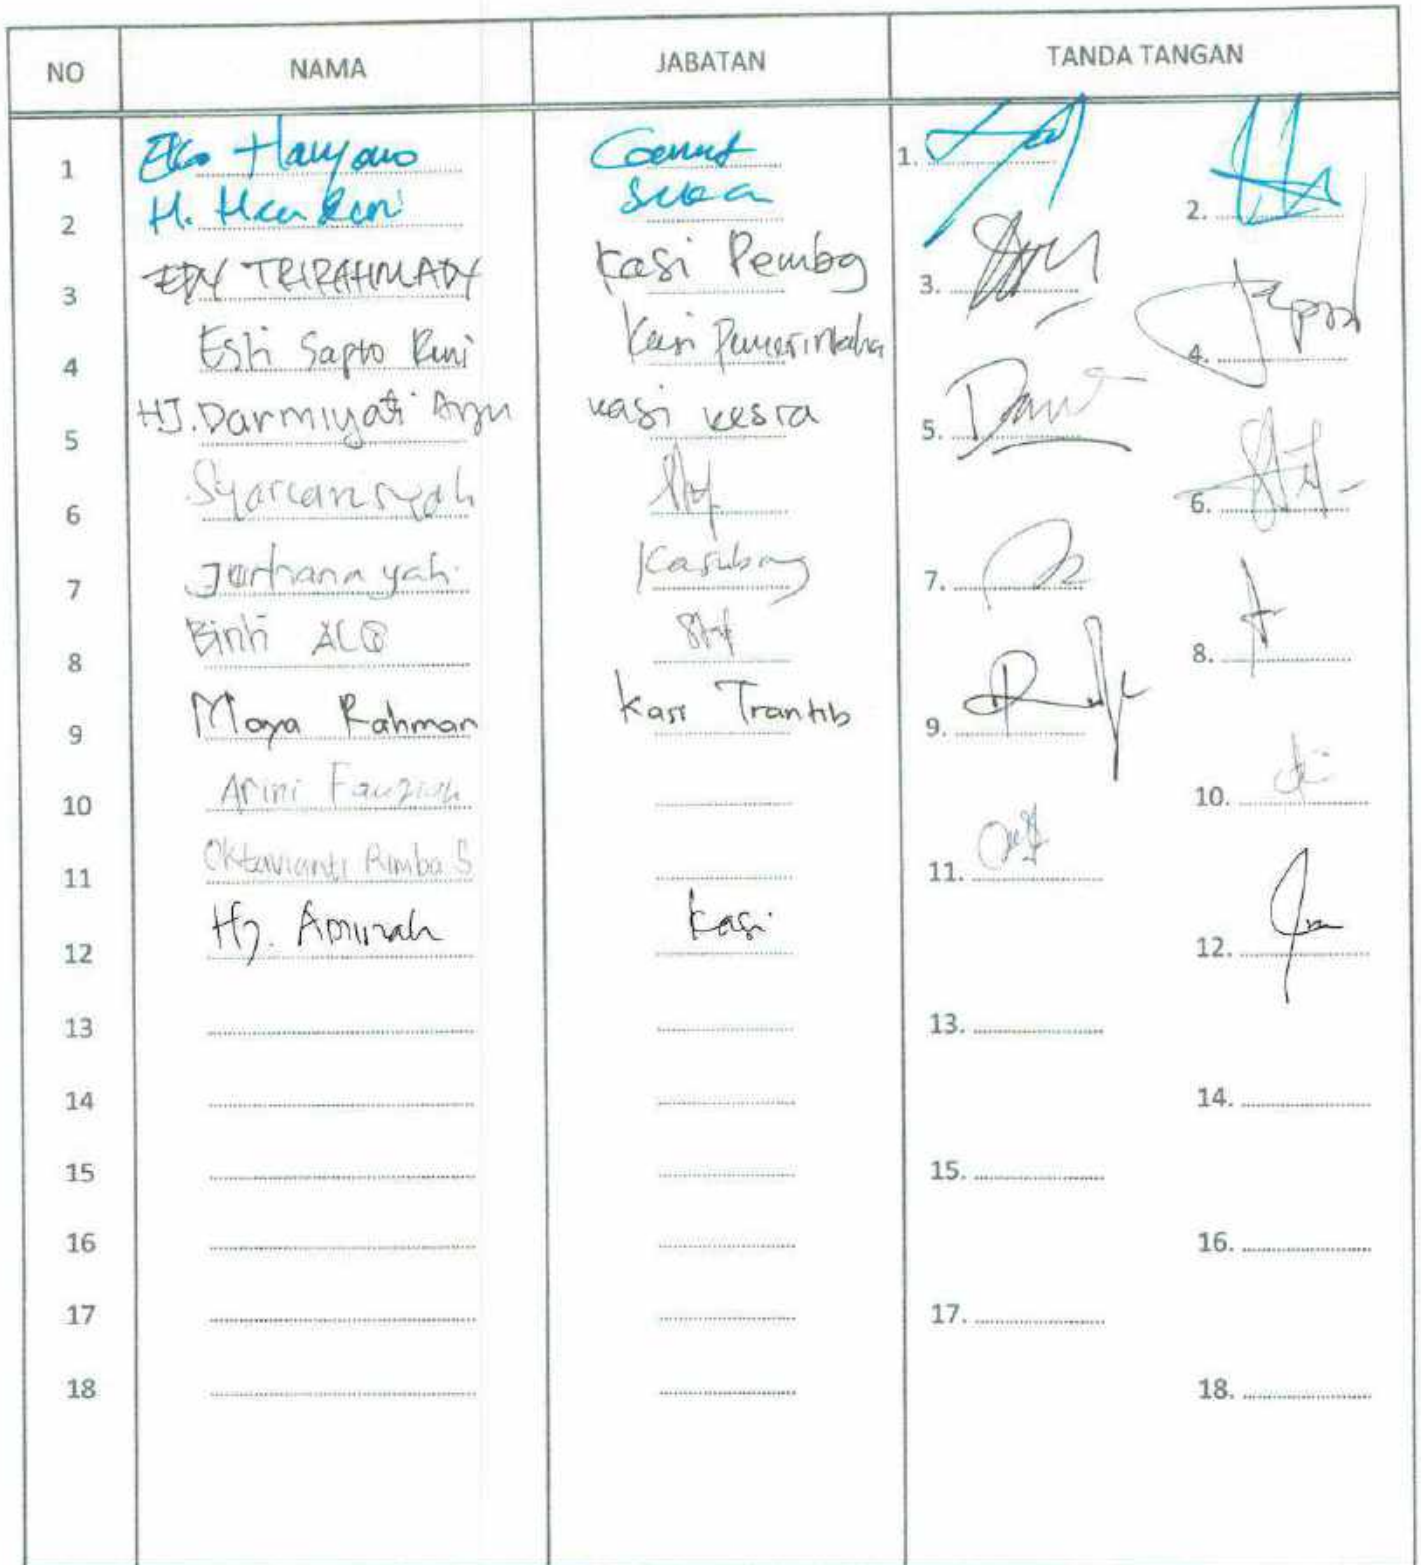 NO NAMA JABATAN TANDA TANGAN
1 Eko Haryono Camat 1.
2 H. 2.
3 EDY TRIRAHMADY Kasi Pembg 3.
4 Esti Sapto Rini Kasi Pemerintaha 4.
5 HJ. Darmiyati Ayu kasi kesra 5.
6 Staf 6.
7 Kasubag 7.
8 Binti Staf 8.
9 Maya Rahman Kasi Trantib 9.
10 Arini Fauziah 10.
11 Oktavianti Rimba S 11.
12 Hj. Amurah Kasi 12.
13 13.
14 14.
15 15.
16 16.
17 17.
18 18.